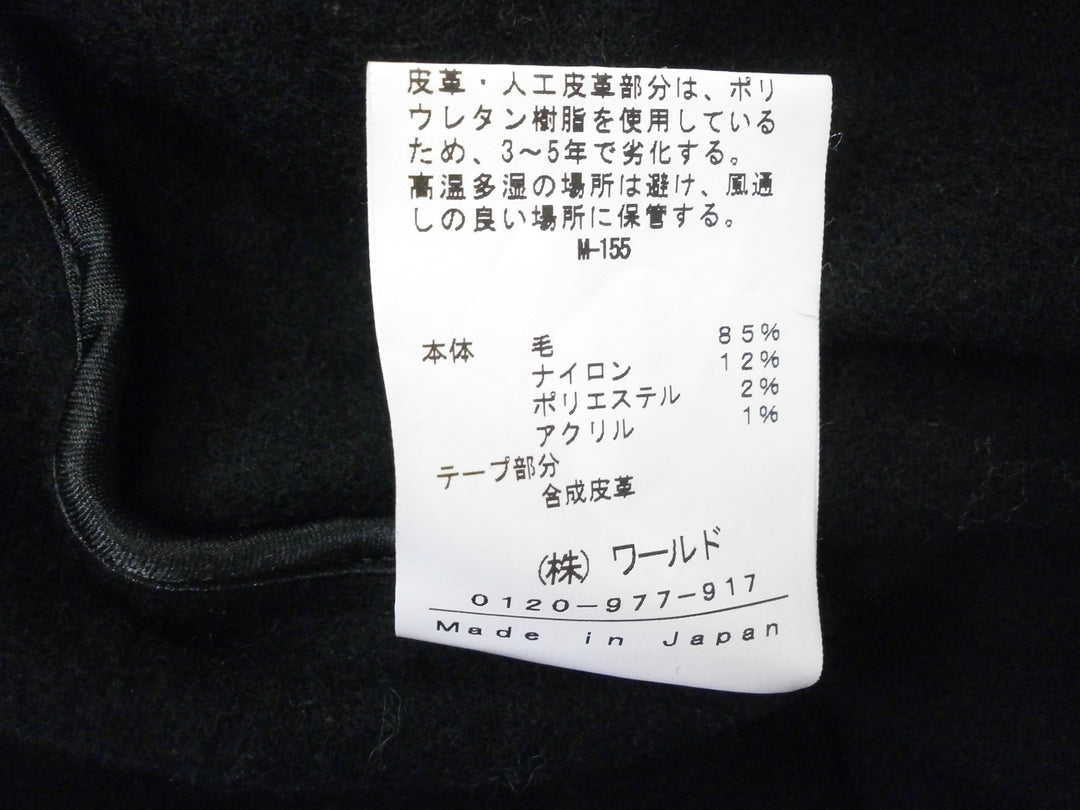 皮革・人工皮革部分は、ポリ
ウレタン樹脂を使用している
ため、3～5年で劣化する。
高温多湿の場所は避け、風通
しの良い場所に保管する。
M-155
本体 毛 85%
ナイロン 12%
ポリエステル 2%
アクリル 1%
テープ部分
合成皮革
(株) ワールド
0120-977-917
Made in Japan